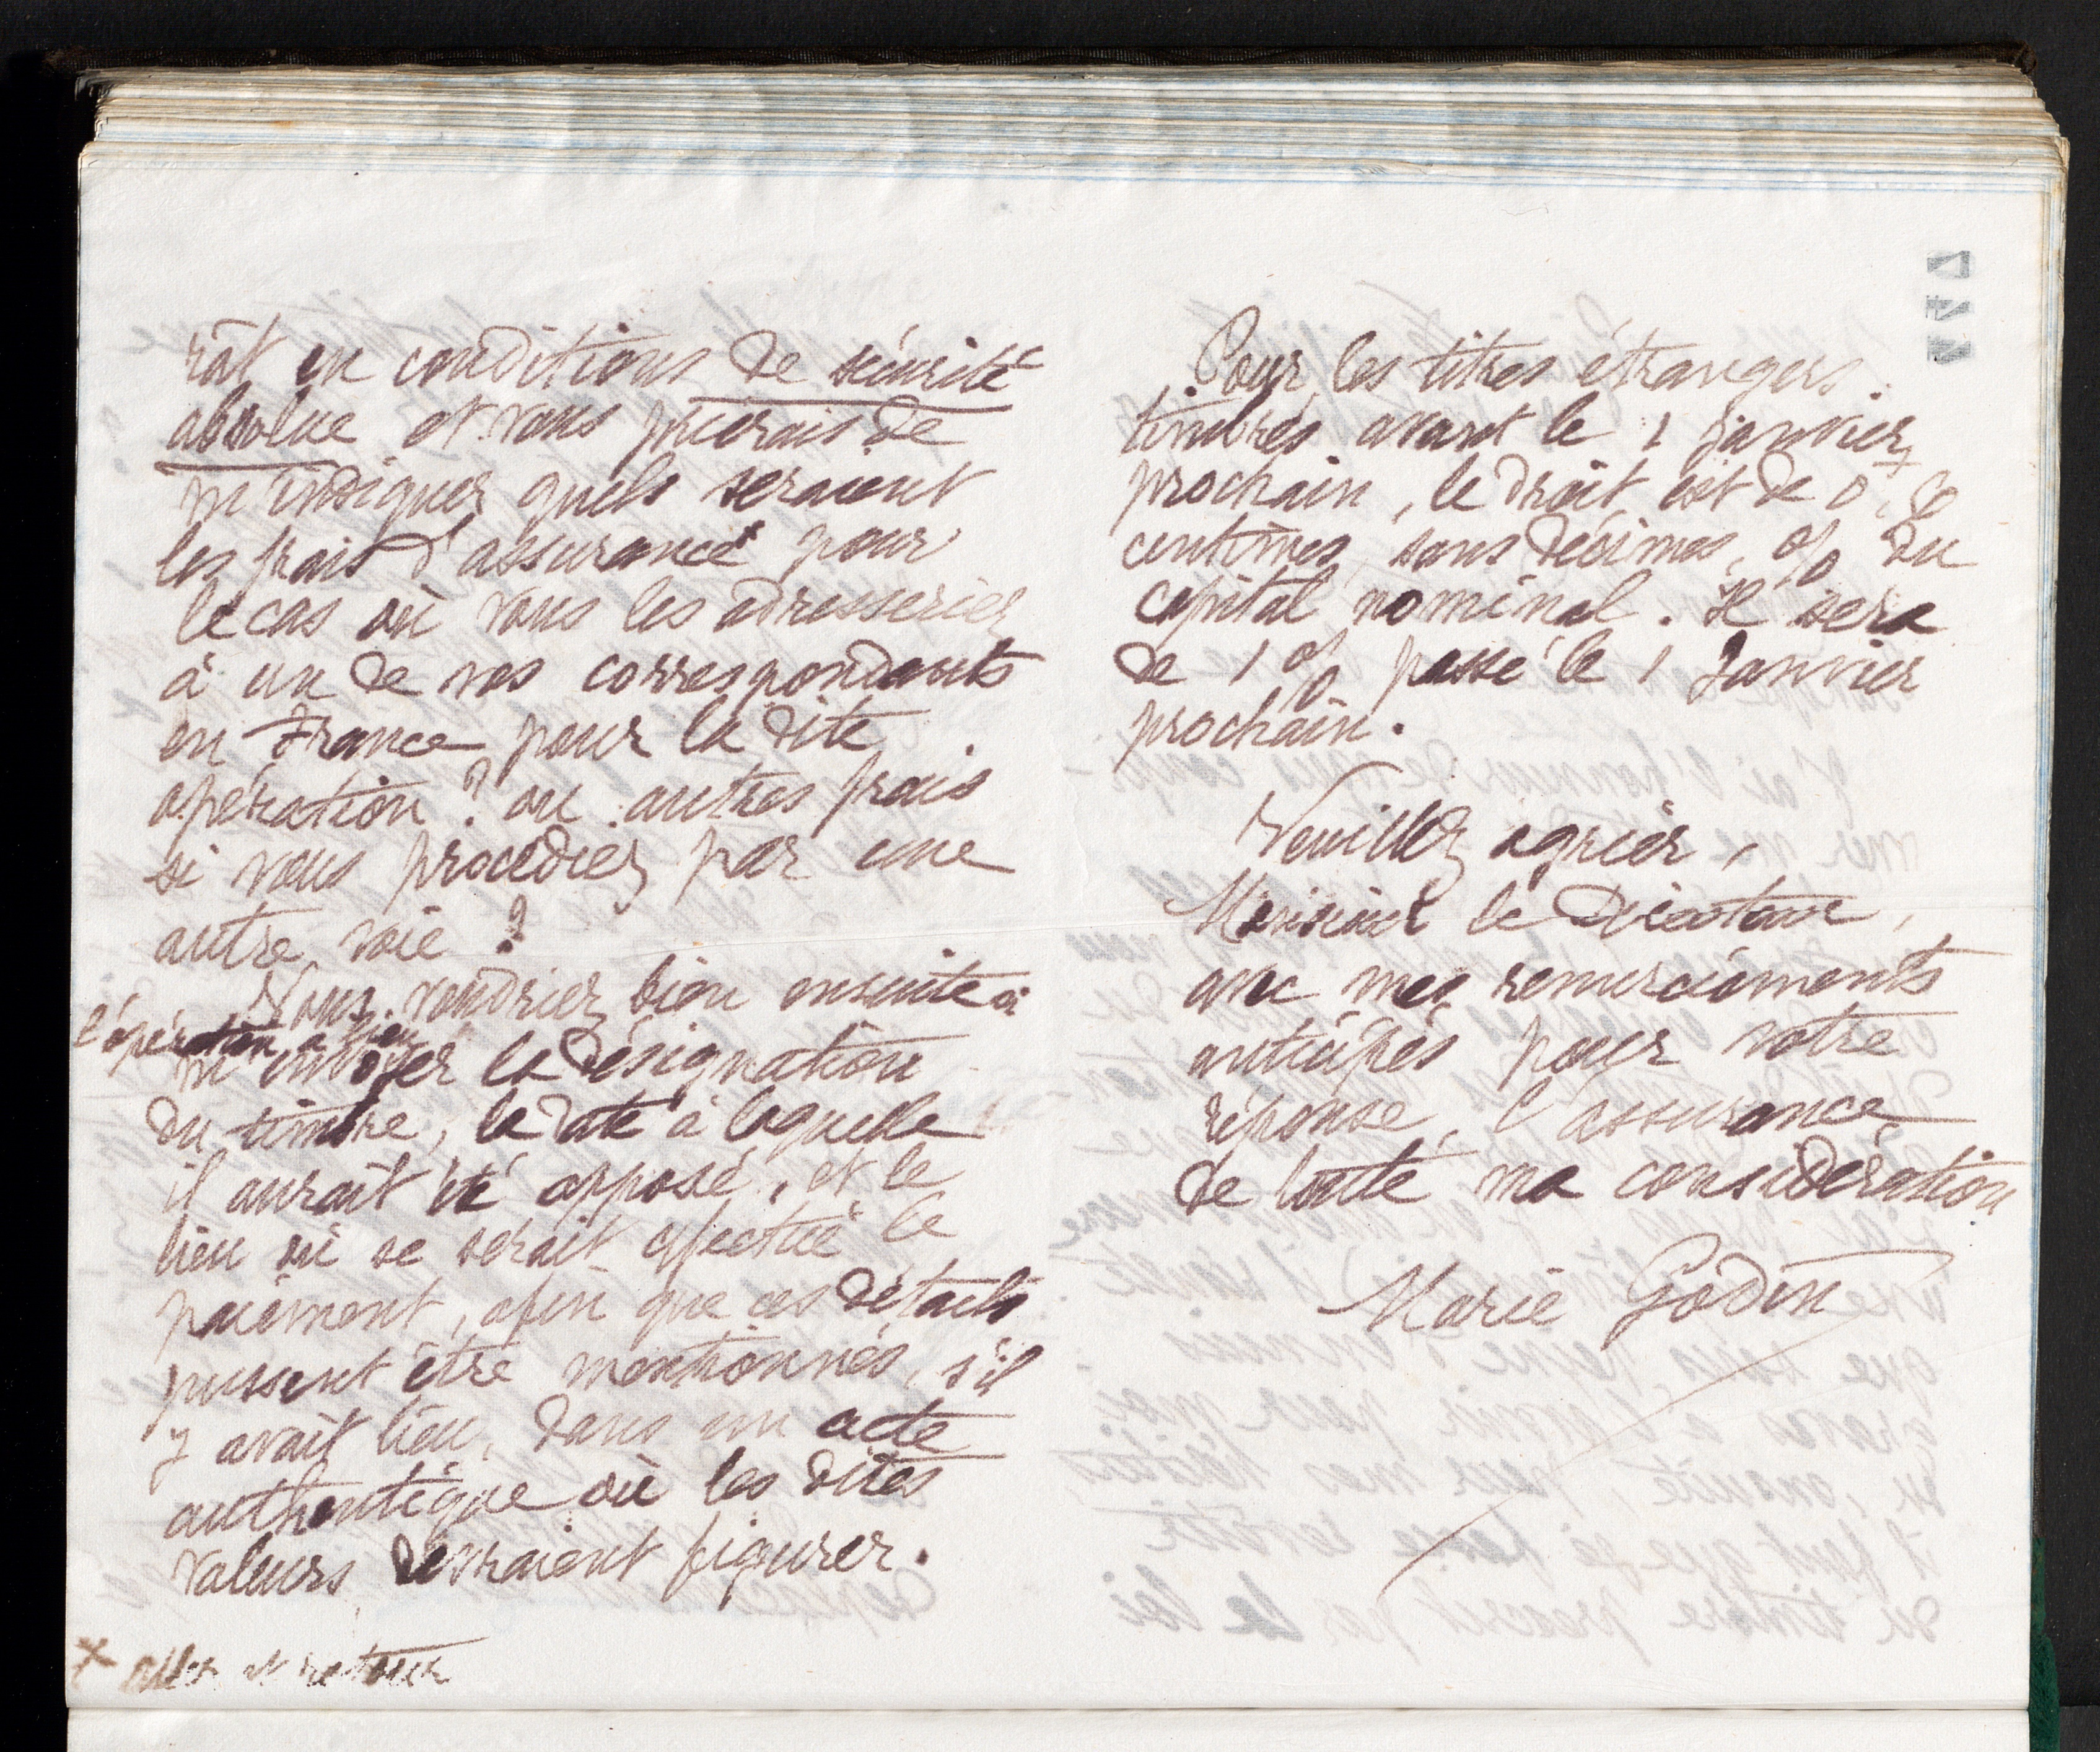 rât en conditions de sécurité
absolue et vous prierais de
m'indiquer quels seraient
les frais d'assurance* pour
le cas où vous les adresseriez
à un de vos correspondants
en France pour la dite
opération ? ou autres frais
si vous procédiez par une
autre voie ?
Vous voudriez bien ensuite si
l'opération a lieu
m'envoyer la désignation
du timbre, la date à laquelle
il aurait été apposé, et le
lieu où se serait effectué le
paiement, afin que ces détails
pussent être mentionnés, s'il
y avait lieu, dans un acte
authentique où les dites
valeurs devraient figurer.
x aller et retour
Pour les titres étrangers
timbrés avant le 1 janvier
prochain, le droit est de 0
centimes, sans décimes, % du
capital nominal. Il sera
de 1 % passé le 1 Janvier
prochain.
Veuillez agréer,
Monsieur le Directeur,
avec mes remerciements
anticipés pour votre
réponse, l'assurance
de toute ma considération
Marie Godin